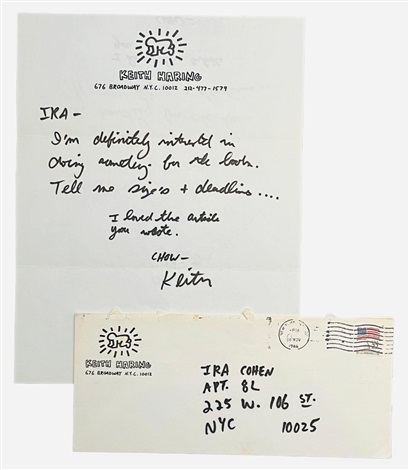 KEITH HARING
676 BROADWAY N.Y.C. 10012 212-477-1579
IRA—
I'm definitely interested in
doing something for the book.
Tell me size's + deadline....
I loved the article
you wrote.
CHOW—
Keith
KEITH HARING
676 BROADWAY N.Y.C. 10012
IRA COHEN
APT. 8L
225 W. 106 ST.
NYC 10025